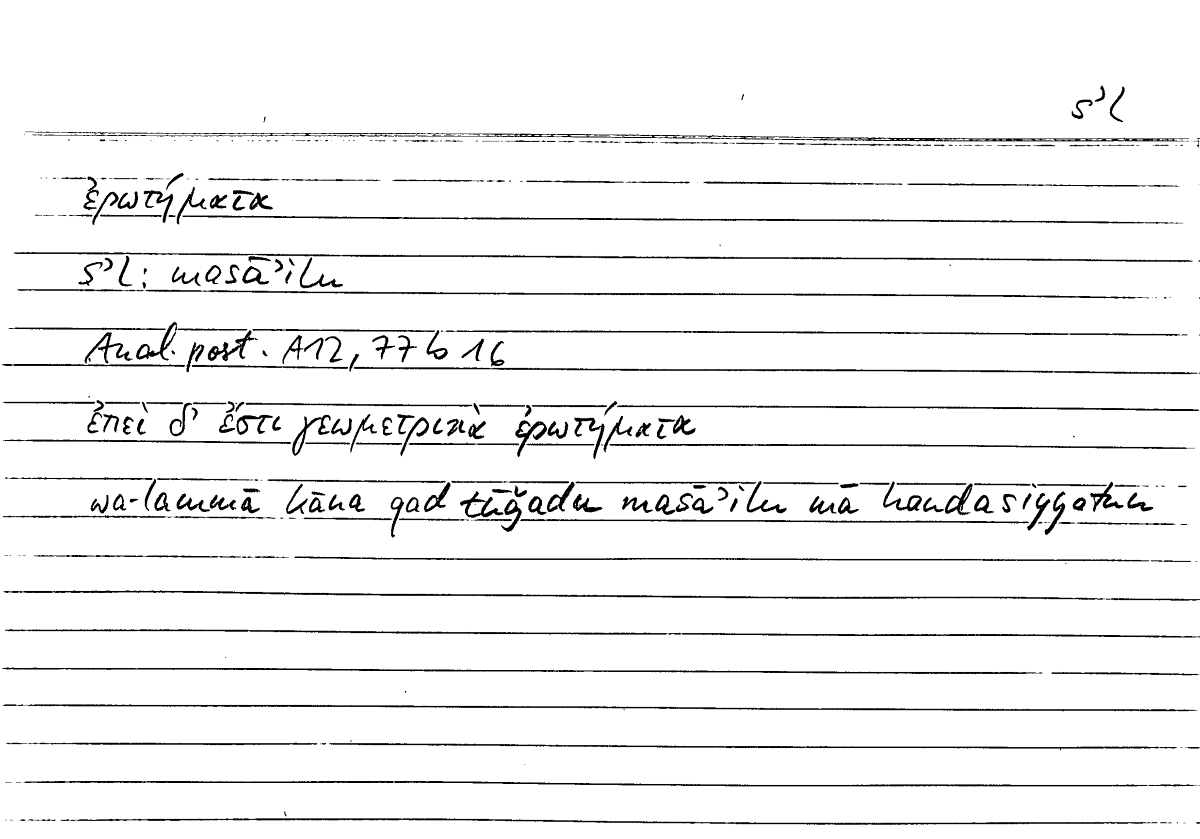 sʾl
ἐρωτήματα
sʾl: masāʾilu
Anal. post. A12, 77 b 16
ἐπεὶ δ' ἔστι γεωμετρικὰ ἐρωτήματα
wa-lammā kāna qad tūǧadu masāʾilu mā handasiyyatun